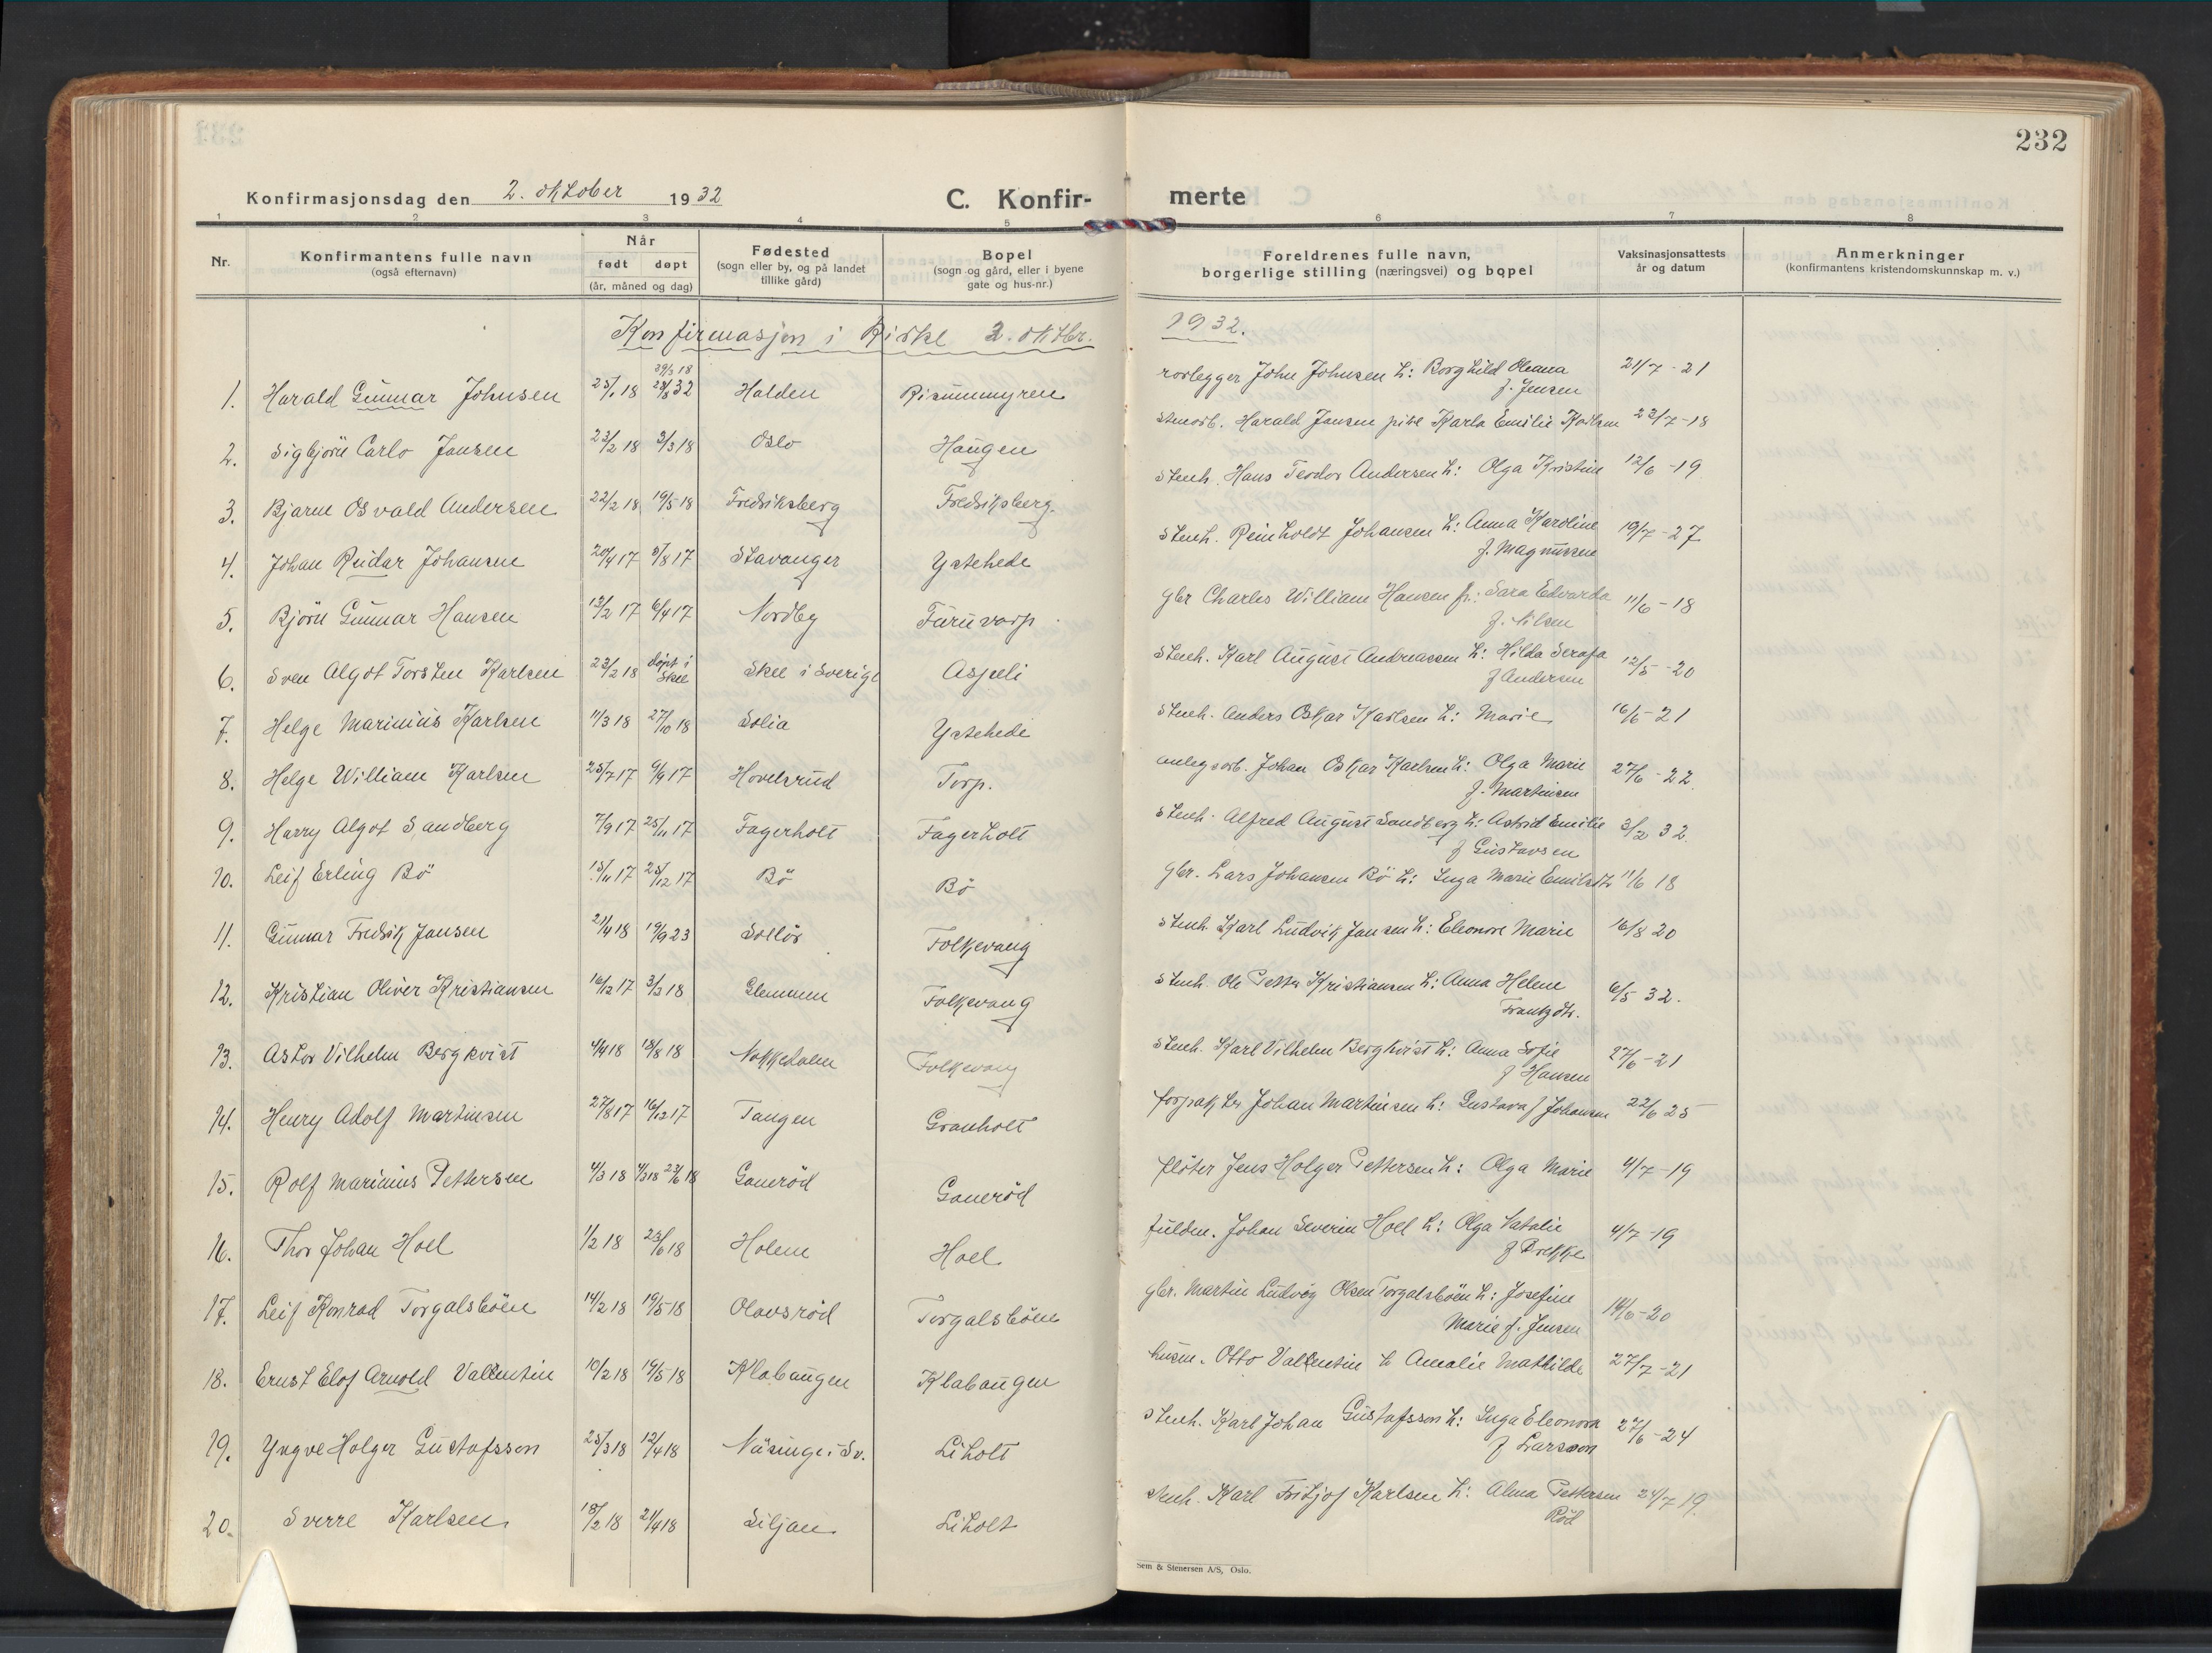 232
Konfirmasjonsdag den 2. oktober 1932
C. Konfir-
merte
1 2 3 4 5 6 7 8
Nr.
Konfirmantens fulle navn
(også efternavn)
Når
født døpt
(år, måned og dag)
Fødested
(sogn eller by, og på landet
tillike gård)
Bopel
(sogn og gård, eller i byene
gate og hus-nr.)
Foreldrenes fulle navn,
borgerlige stilling (næringsvei) og bopel
Vaksinasjonsattests
år og datum
Anmerkninger
(konfirmantens kristendomskunnskap m. v.)
Konfirmasjon i 2. oktbr. 1932.
1. Harald Gunnar Johnsen 25/1 18 Halden Risummyren rørlegger John Johnsen h: Borghild Oleana f. Jensen 21/7 - 21
2. Sigbjörn Carlo Jansen 23/2 18 3/3 18 Oslo Haugen Harald Jansen pike Karla Emilie Karlsen 23/7 - 18
3. Bjarne Osvald Andersen 22/2 18 19/5 18 Fredriksberg Fredriksberg. stenh. Hans Teodor Andersen h: Olga Kristine 12/6 - 19
4. Johan Reidar Johansen 20/4 17 5/8 17 Stavanger Ystehede stenh. Reinholdt Johansen h: Anna Karoline f. Magnussen 19/7 - 27
5. Björn Gunnar Hansen 13/2 17 6/4 17 Nordby Furuvarp gbr Charles William Hansen fr: Sara Edvarda f. Nilsen 11/6 - 18
6. Sven Algot Torsten Karlsen 23/2 18 döpt i Skee Skee i Sverige Aspeli stenh. Karl August Andreassen h: Hilda Serafa f Andersen 12/5 - 20
7. Helge Marinius Karlsen 11/3 18 27/10 18 Solia Ystehede stenh. Anders Oskar Karlsen h: Marie 16/6 - 21
8. Helge William Karlsen 25/7 17 9/9 17 Hovelsrud Torp. anlegsarb. Johan Oskar Karlsen h: Olga Marie f. Martinsen 27/6 - 22
9. Harry Algot Sandberg 7/9 17 25/11 17 Fagerholt Fagerholt stenh. Alfred August Sandberg h: Astrid Emilie f Gustavsen 3/2 32.
10. Leif Erling Bö 15/11 17 25/12 17 Bö Bö gbr. Lars Johansen Bö h: Inga Marie Emilsdtr 11/6 18
11. Gunnar Fredrik Jansen 21/4 18 19/9 23 Solör Folkevang stenh Karl Ludvik Jansen h: Eleonore Marie 16/8 20
12. Kristian Oliver Kristiansen 16/12 17 3/3 18 Glemmen Folkevang stenh. Ole Petter Kristiansen h: Anna Helene Frantzdtr. 6/5 32.
13. Astor Vilhelm Bergkvist 4/4 18 18/8 18 Nokkedalen Folkevang stenh. Karl Vilhelm Bergkvist h: Anna Sofie f Hansen 27/6 - 21
14. Henry Adolf Martinsen 27/8 17 16/12 17 Tangen Granholt forpakter Johan Martinsen h: Gustava f Johansen 22/6 25
15. Rolf Marinius Pettersen 4/3 18 23/6 18 Ganeröd Ganeröd flöter Jens Holger Pettersen h: Olga Marie 4/7 - 19
16. Thor Johan Hoel 1/2 18 23/6 18 Holem Hoel fuldm. Johan Severin Hoel h: Olga Natalie f Brekke 4/7 - 19
17. Leif Konrad Torgalsböen 14/2 18 19/5 18 Olavsröd Torgalsböen gbr. Martin Ludvig Olsen Torgalsböen h: Josefine Marie f. Jensen 14/6 - 20
18. Ernst Elof Arnold Vallentin 10/2 18 19/5 18 Klabaugen Klabaugen husm. Otto Vallentin h Amalie Mathilde 27/7 - 21
19. Yngve Holger Gustafsson 25/3 18 12/4 18 Näsinge i Sv. Liholt stenh. Karl Johan Gustafsson h: Inga Eleonora f Larsson 27/6 - 24
20. Sverre Karlsen 18/2 18 21/4 18 Siljan Liholt stenh. Karl Fritjof Karlsen h: Alma Pettersen Röd 24/7 19.
Sem & Stenersen A/S, Oslo.